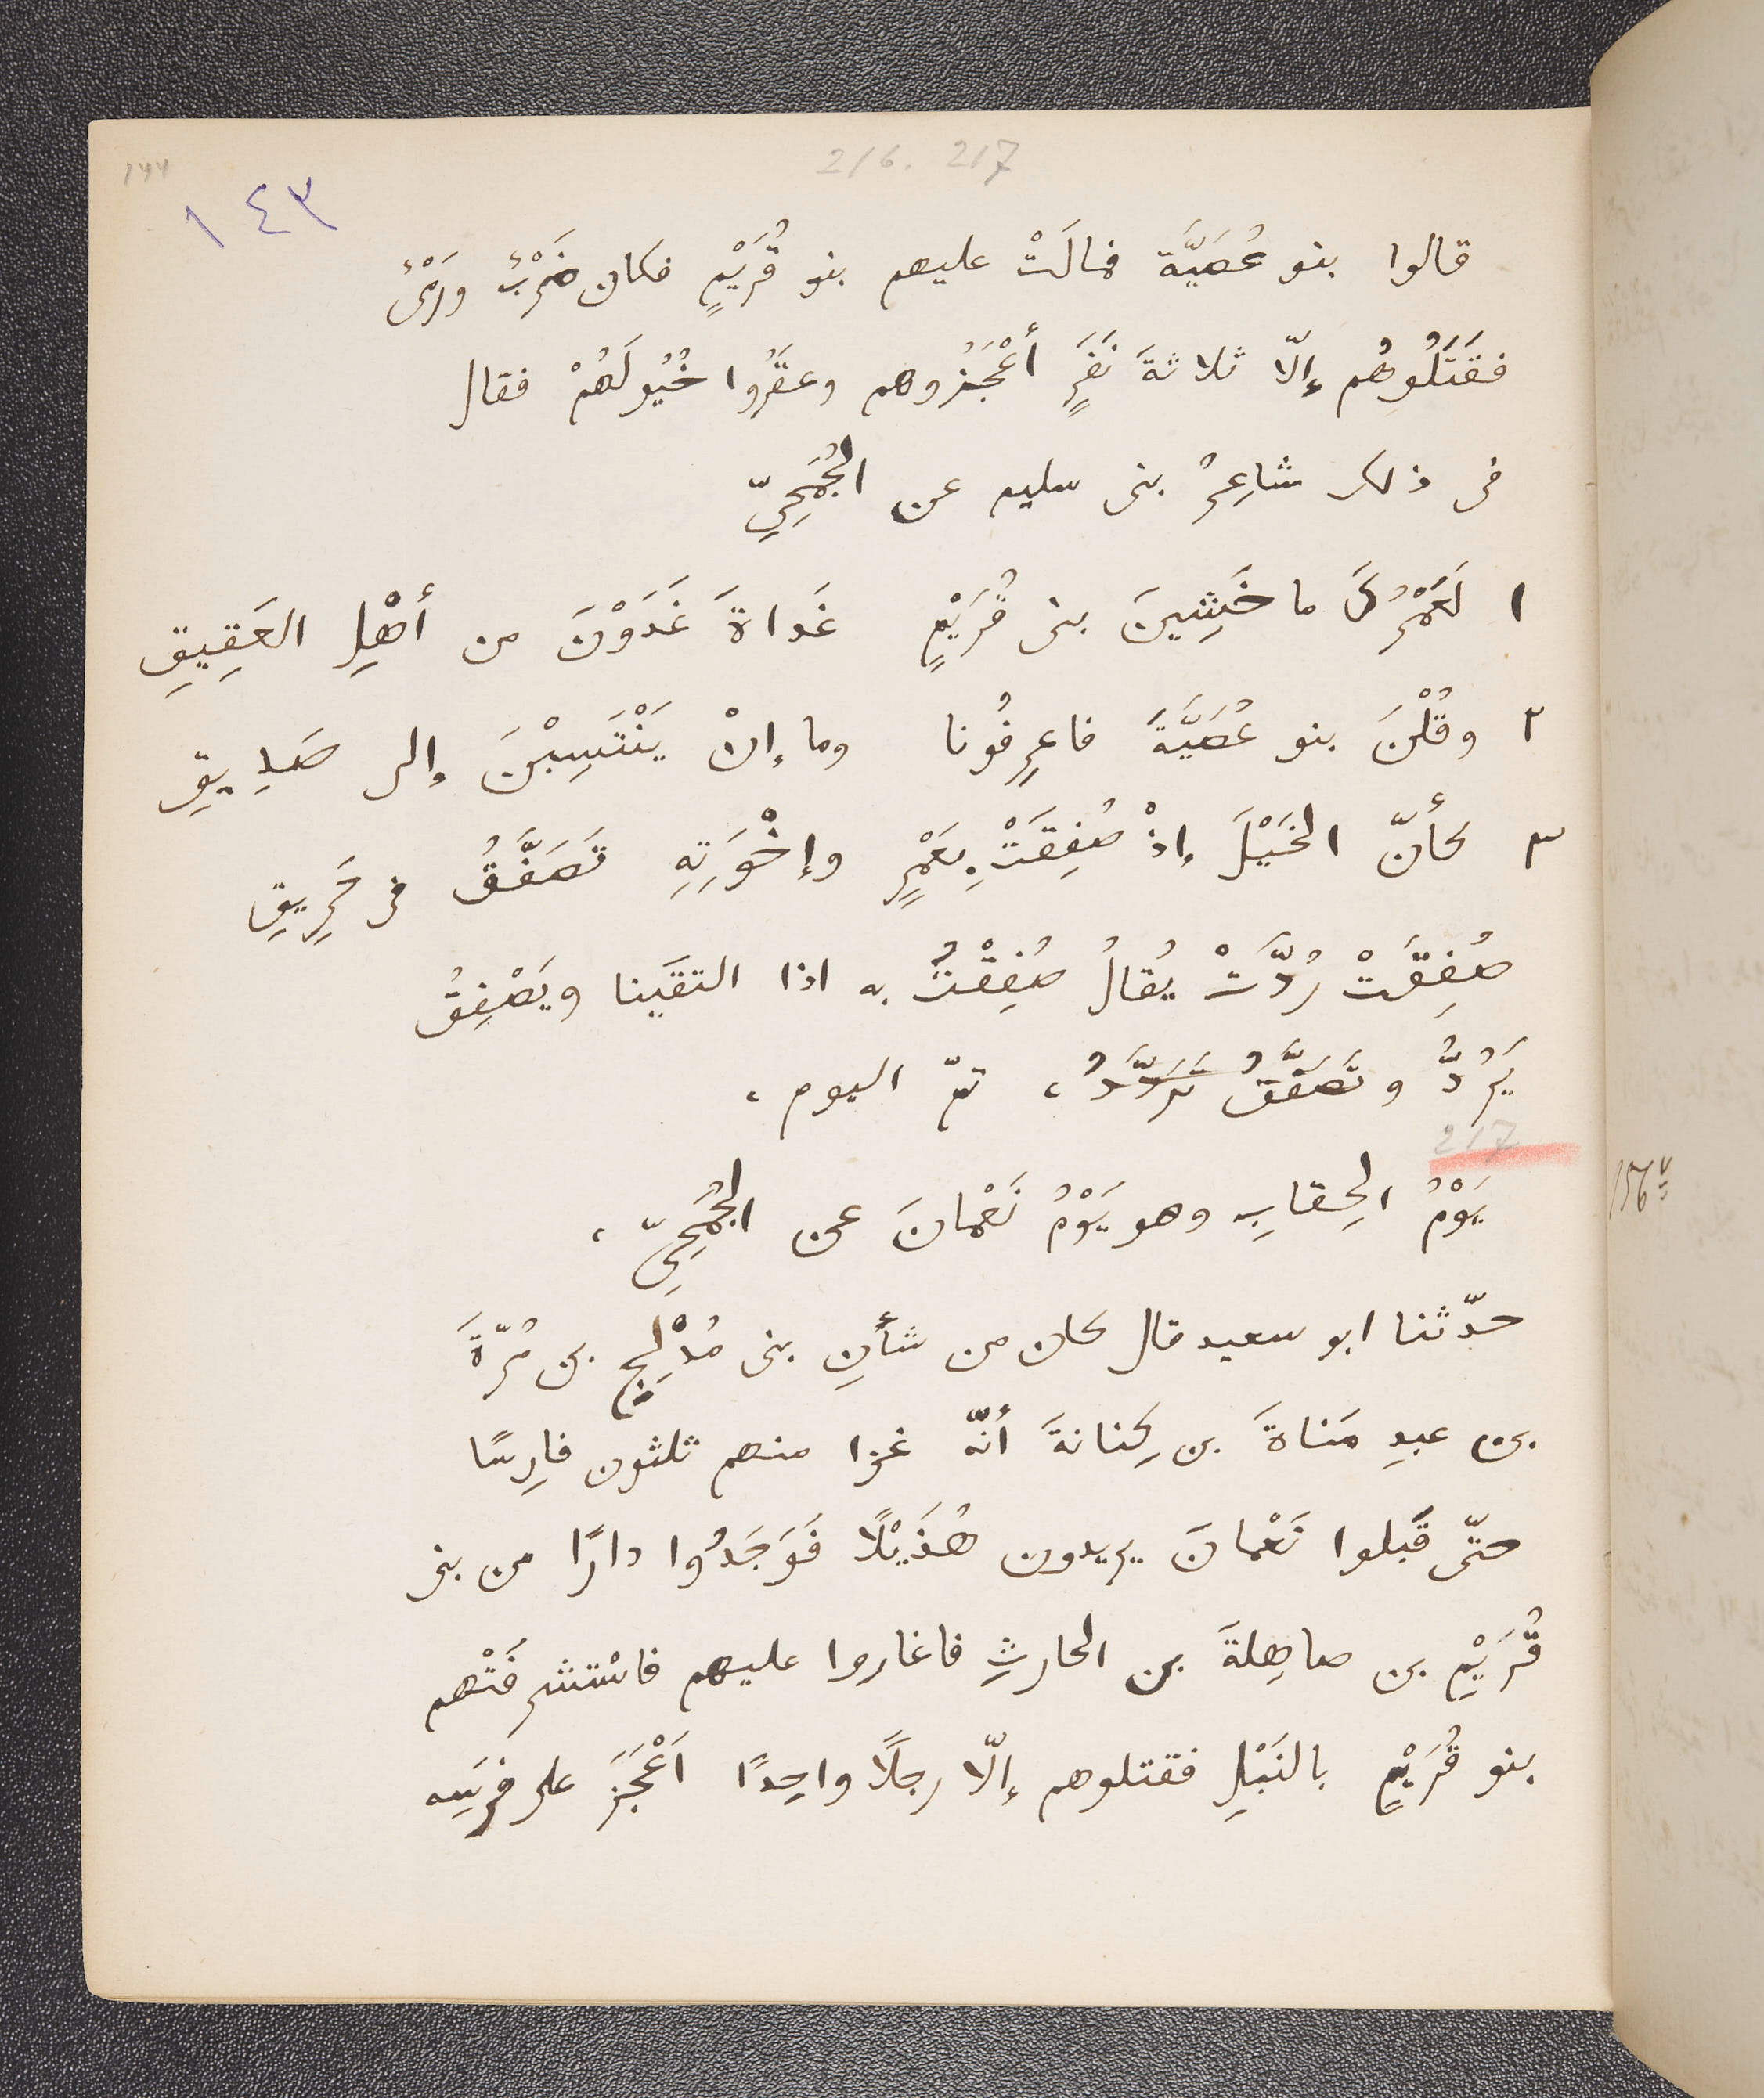 216. 217
١٤٣
قالوا بنو عُصَيَّة فمالَتْ عليهم بنو قُرَيْمٍ فكان ضَرْبٌ ورَمْىٌ
فقَتَلُوهُم إلّا ثلاثةَ نَفَرٍ أَعْجَزُوهم وعقَرُوا خُيُولَهُمْ فقال
فى ذلك شاعِرُ بنى سليم عن الجُمَحِىِّ
١ لَعَمْرُكَ ما خَشِينَ بنى قُرَيْمٍ غَداةَ غَدَوْنَ من أهْلِ العَقِيقِ
٢ وقُلْنَ بنو عُصَيَّةَ فاعرِفُونا وما إنْ يَنْتَسِبْنَ إلى صَدِيقِ
٣ كأنّ الخَيْلَ إذْ صُفِقَتْ بِعَمْرٍ وإخْوَتِهِ تَصَفَّقُ فى حَرِيقِ
صُفِقَتْ رُدَّتْ يُقالُ صُفِقْتُ به اذا التقَينا ويَصْفِقُ
يَرُدُّ وتَصَفَّقُ تَرَدَّدُ، تمّ اليوم،
217
يَوْمُ الحِقابِ وهو يَوْمُ نَعْمانَ عن الجُمَحِىِّ،
156v
حدّثنا ابو سعيد قال كان من شأنِ بنى مُدْلِجِ بن مُرّةَ
بن عبدِ مَناةَ بن كِنانةَ أنّه غزا منهم ثلثون فارِسًا
حتّى قَبلوا نَعْمانَ يريدون هُذَيْلًا فَوَجَدُوا دارًا من بنى
قُرَيْمِ بن صاهِلةَ بن الحارثِ فاغاروا عليهم فاسْتشرفَتْهم
بنو قُرَيْمٍ بالنَبْلِ فقتلوهم إلّا رجلًا واحِدًا اَعْجَزَ على فرَسِه